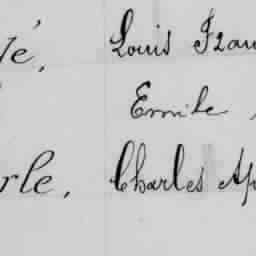 é, Louis Fran
Emile
rle, Charles Ap